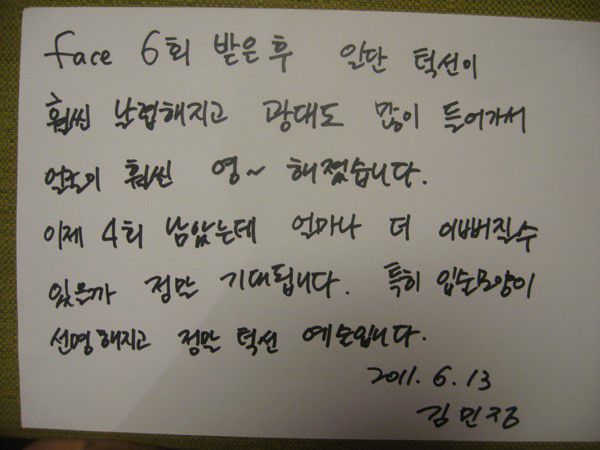 face 6회 받은후 일단 턱선이
훨씬 날렵해지고 광대도 많이 들어가서
얼굴이 훨씬 영~ 해졌습니다.
이제 4회 남았는데 얼마나 더 이뻐질수
있을까 정말 기대됩니다. 특히 입술모양이
선명해지고 정말 턱선 예술입니다.
2011. 6. 13
김민정